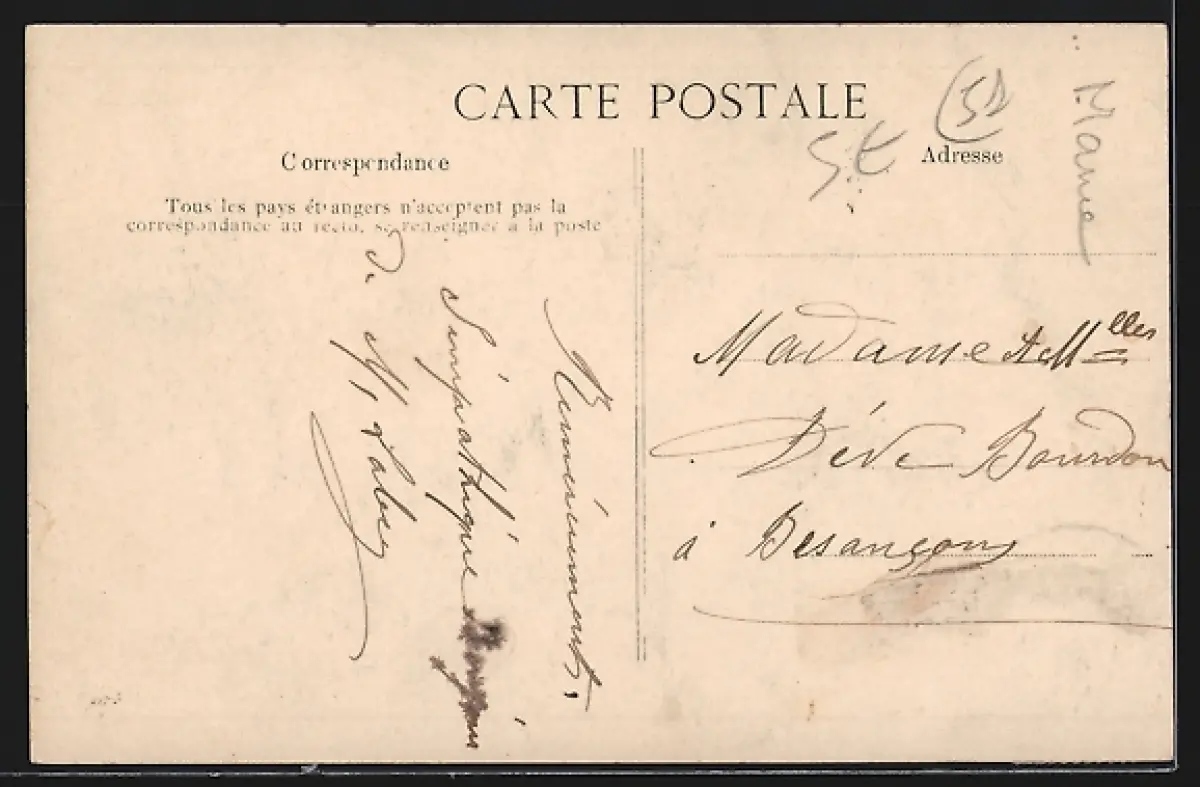 CARTE POSTALE
Correspondance
Tous les pays étrangers n'acceptent pas la
correspondance au recto, se renseigner à la poste
Adresse
(51)
Marne
St
Remerciements,
Simpathique
de M.
Madame & Melles
Déve Bourdon
à Besançon